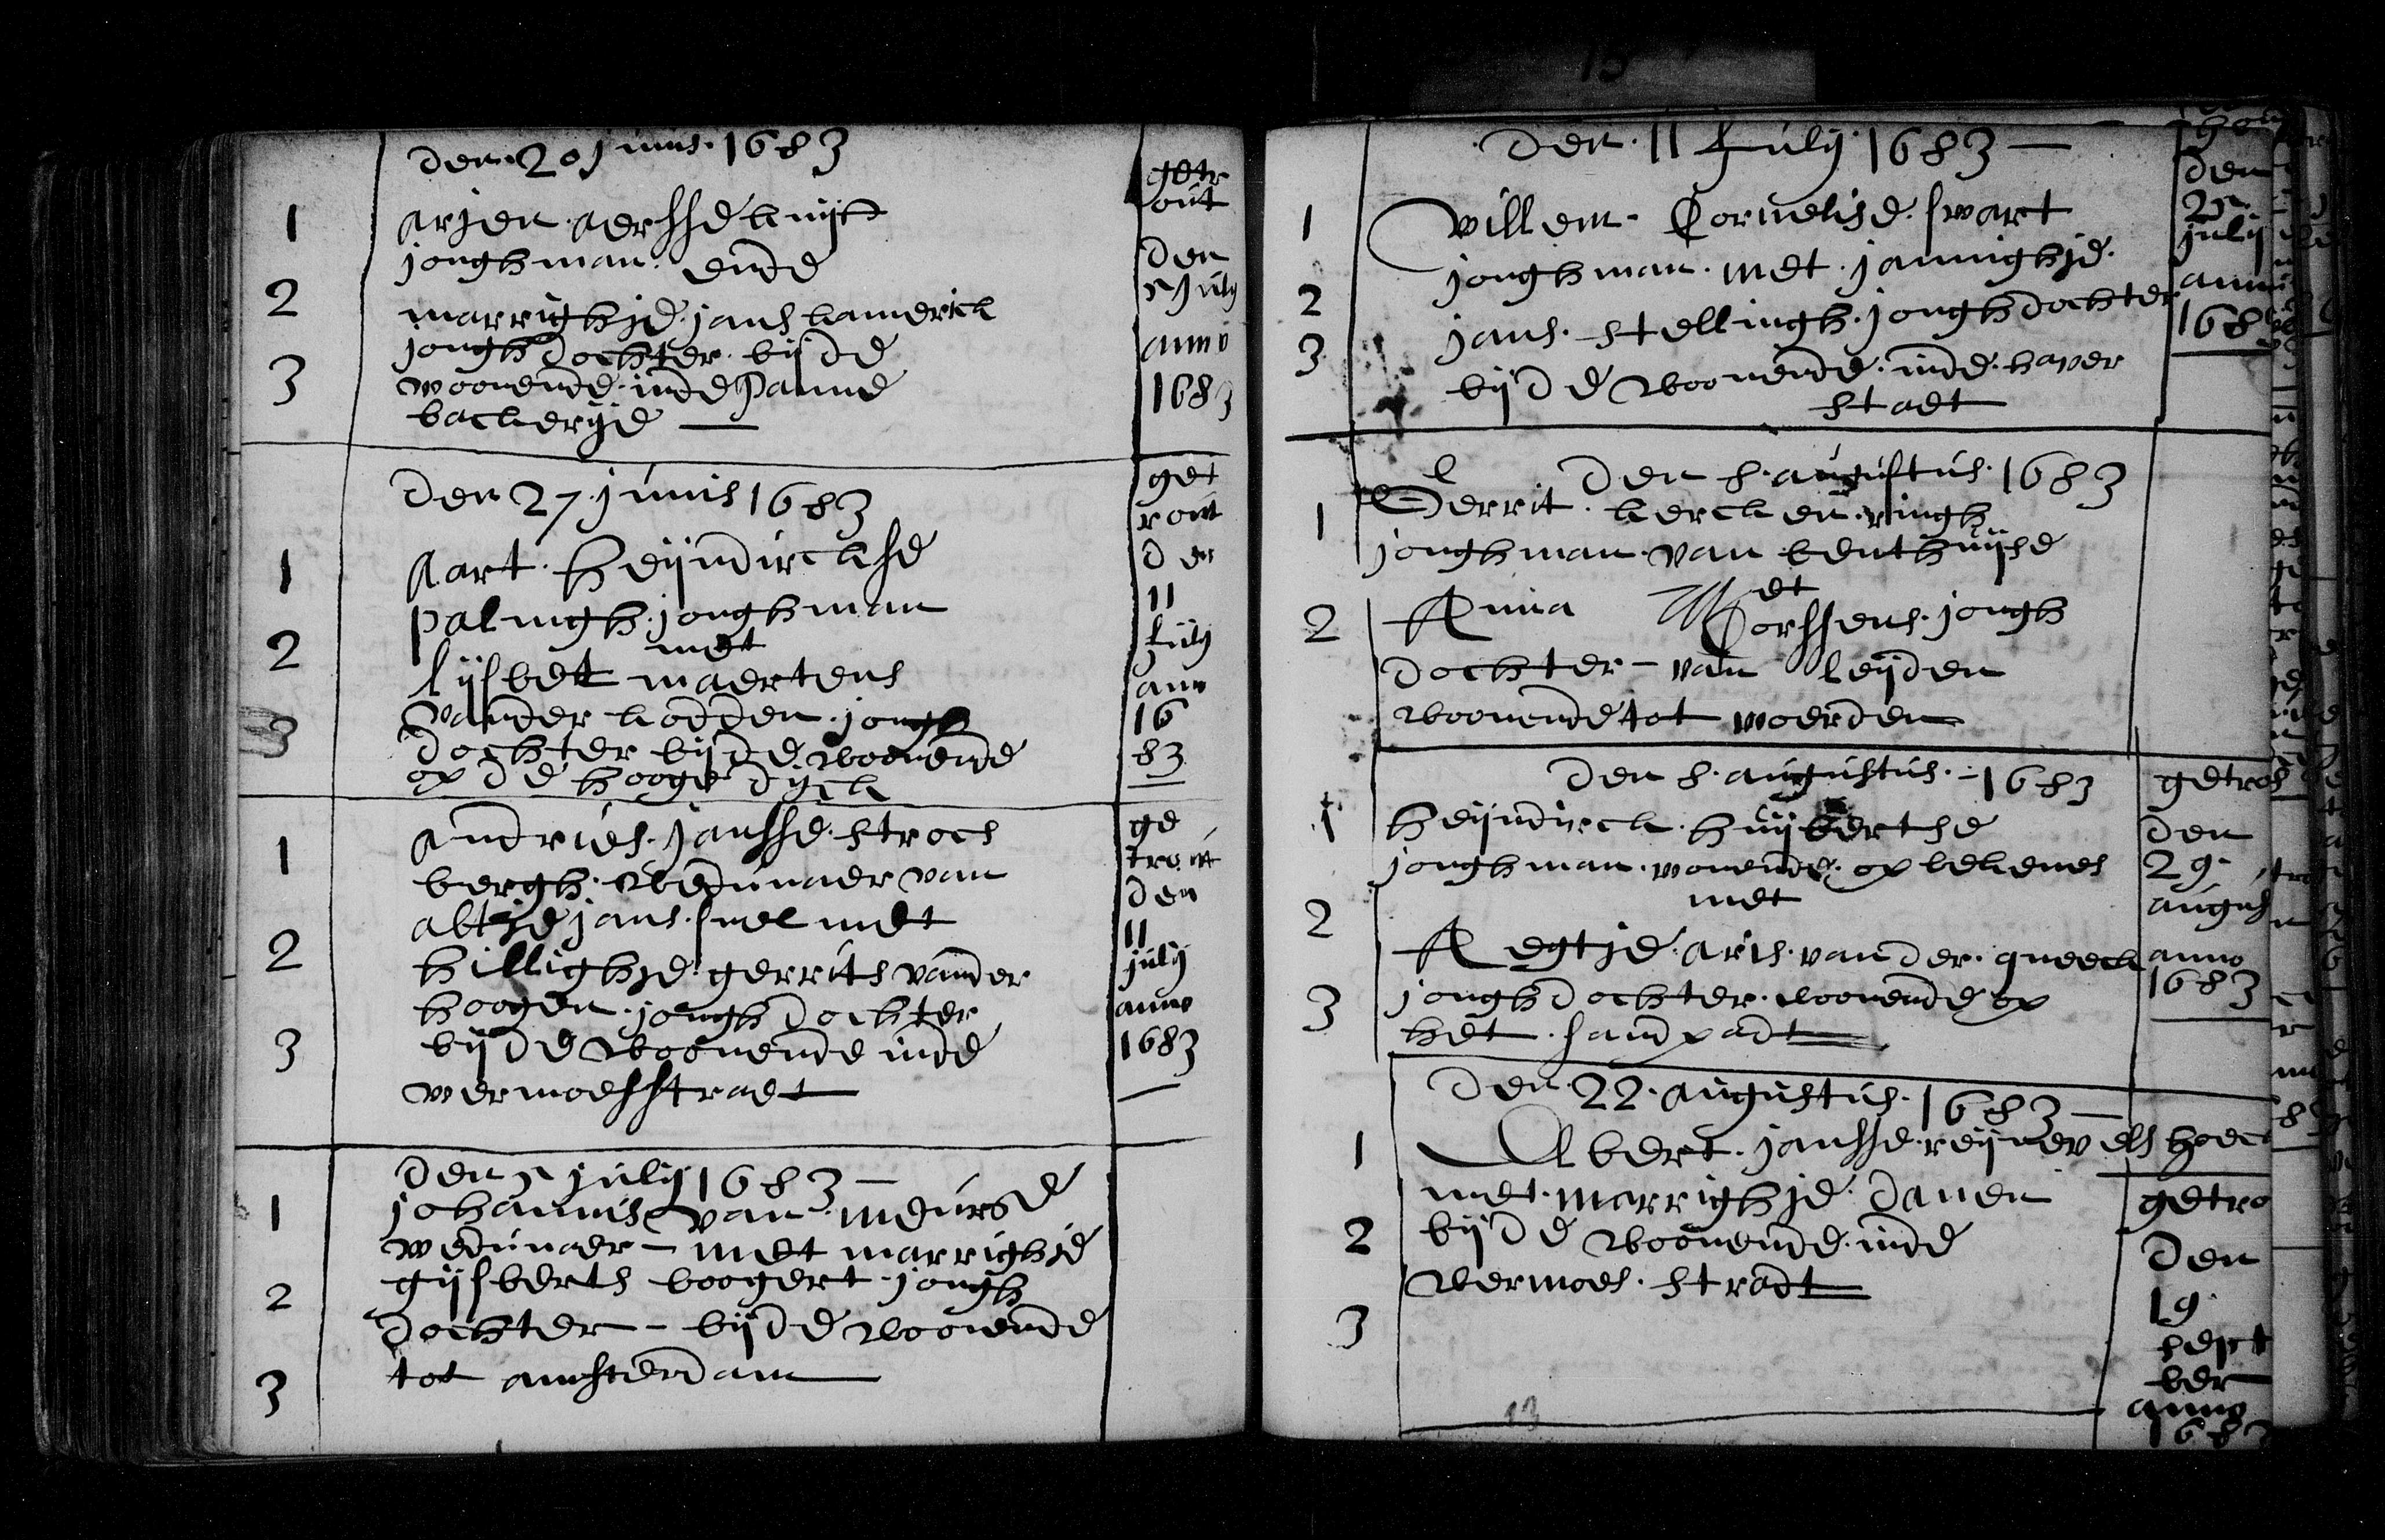 den 20 junis 1683
1 arjen aerssse kuijt
jonghman ende
2 marrighje jans lamerick
jongh dochter bijde
3 woonende inde panne
backerije
getr
out
den
5 july
anno
1683
den 27 junis 1683
1 Aart heijndirckse
palingh jonghman
met
2 lijsbett maertens
vander kodden jongh
3 dochter bijde woonende
op de hooge dijck
get
rout
den
11
july
ano
16
83
1 andries jansse stroes
bergh wedunaer van
altje jans snel met
2 hillighje gerrits vander
hoogen jongh dochter
3 bijde woonende inde
vermoesstraet
ge
trout
den
11
july
anno
1683
den 5 julij 1683
1 johannis van meurse
wedunaer met marrighje
2 gijsberts boogert jongh
dochter bijde woonende
3 tot amsterdam
den 11 july 1683
1 willem Cornelise swart
jonghman met jannighje
2 jans stellingh jongh dochter
3 bijde woonende inde haver
straet
den
25
july
anno
168
den 8 augustus 1683
1 Gerrit kerckenringh
jonghman van benthuijse
met
2 Anna Vorssens jongh
dochter van leijden
woonende tot woerden
den 8 augustus 1683
1 heijndirck huijbertse
jonghman wonende op bekenes
met
2 Aegtje aris vander gneeck
3 jongh dochter woonende op
het sandpadt
getro
den
29
augus
anno
1683
den 22 augustus 1683
1 Albert jansse reijnevelshoec
met marrighje danen
2 bijde woonende inde
vermoes straet
3
getro
den
19
sept
ber
anno
168
13